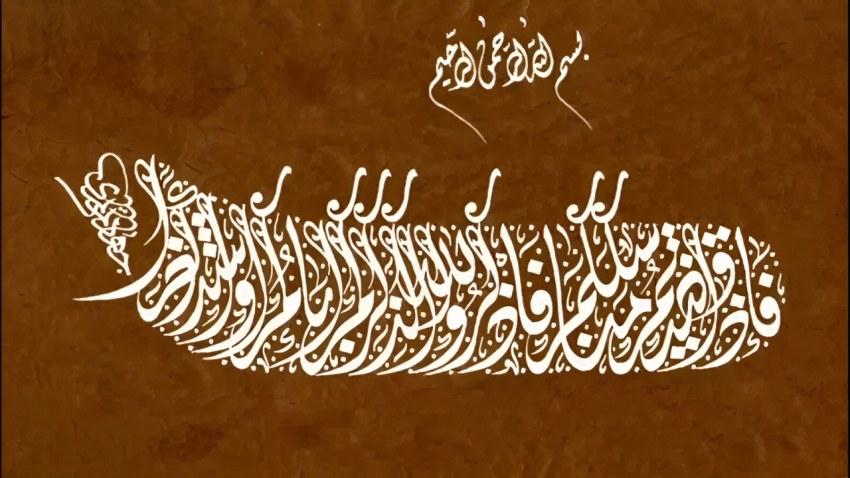 بسم الله الرحمن الرحيم
فإذا قضيتم مناسككم فاذكروا الله كذكركم آباءكم أو أشد ذكرا